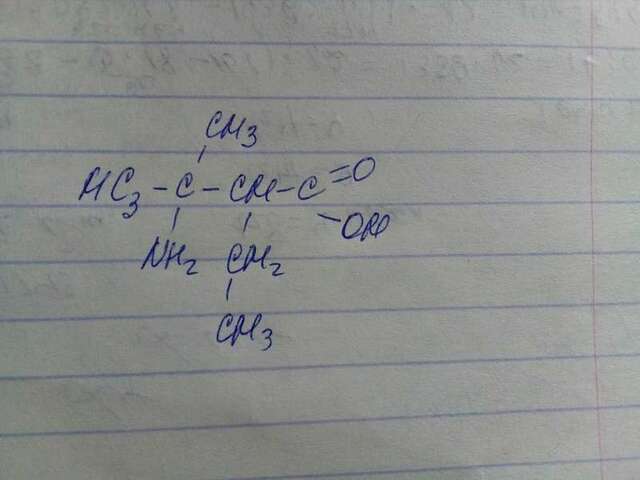 CH3
HC3-C-CH-C=O
-OH
NH2 CH2
CH3